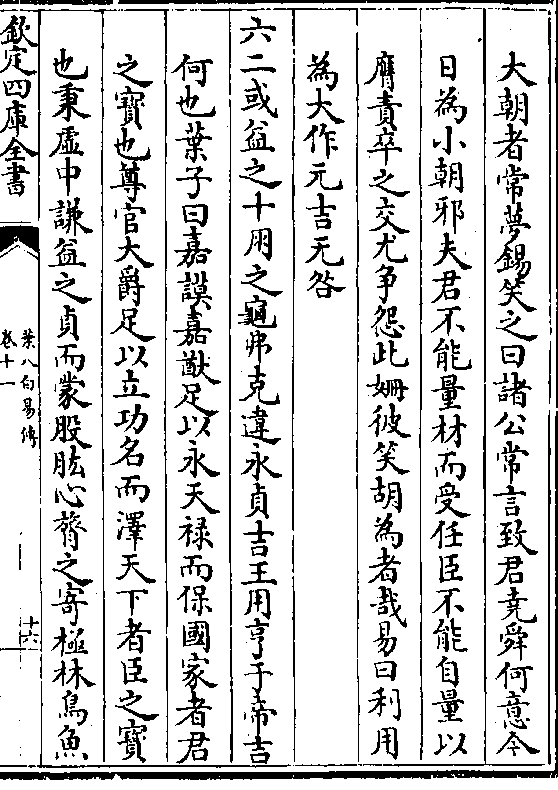 大朝者常夢錫笑之曰諸公常言致君堯舜何意今
日為小朝邪夫君不能量材而受任臣不能自量以
膺責卒之交尤争怨此姗彼笑胡為者哉易曰利用
為大作元吉无咎
六二或益之十朋之龜弗克違永貞吉王用亨于帝吉
何也葉子曰嘉謨嘉猷足以永天禄而保國家者君
之寶也尊官大爵足以立功名而澤天下者臣之寶
也秉虚中謙益之貞而蒙股肱心膂之寄極林鳥魚
欽定四庫全書
葉八白易傳
卷十一
十六